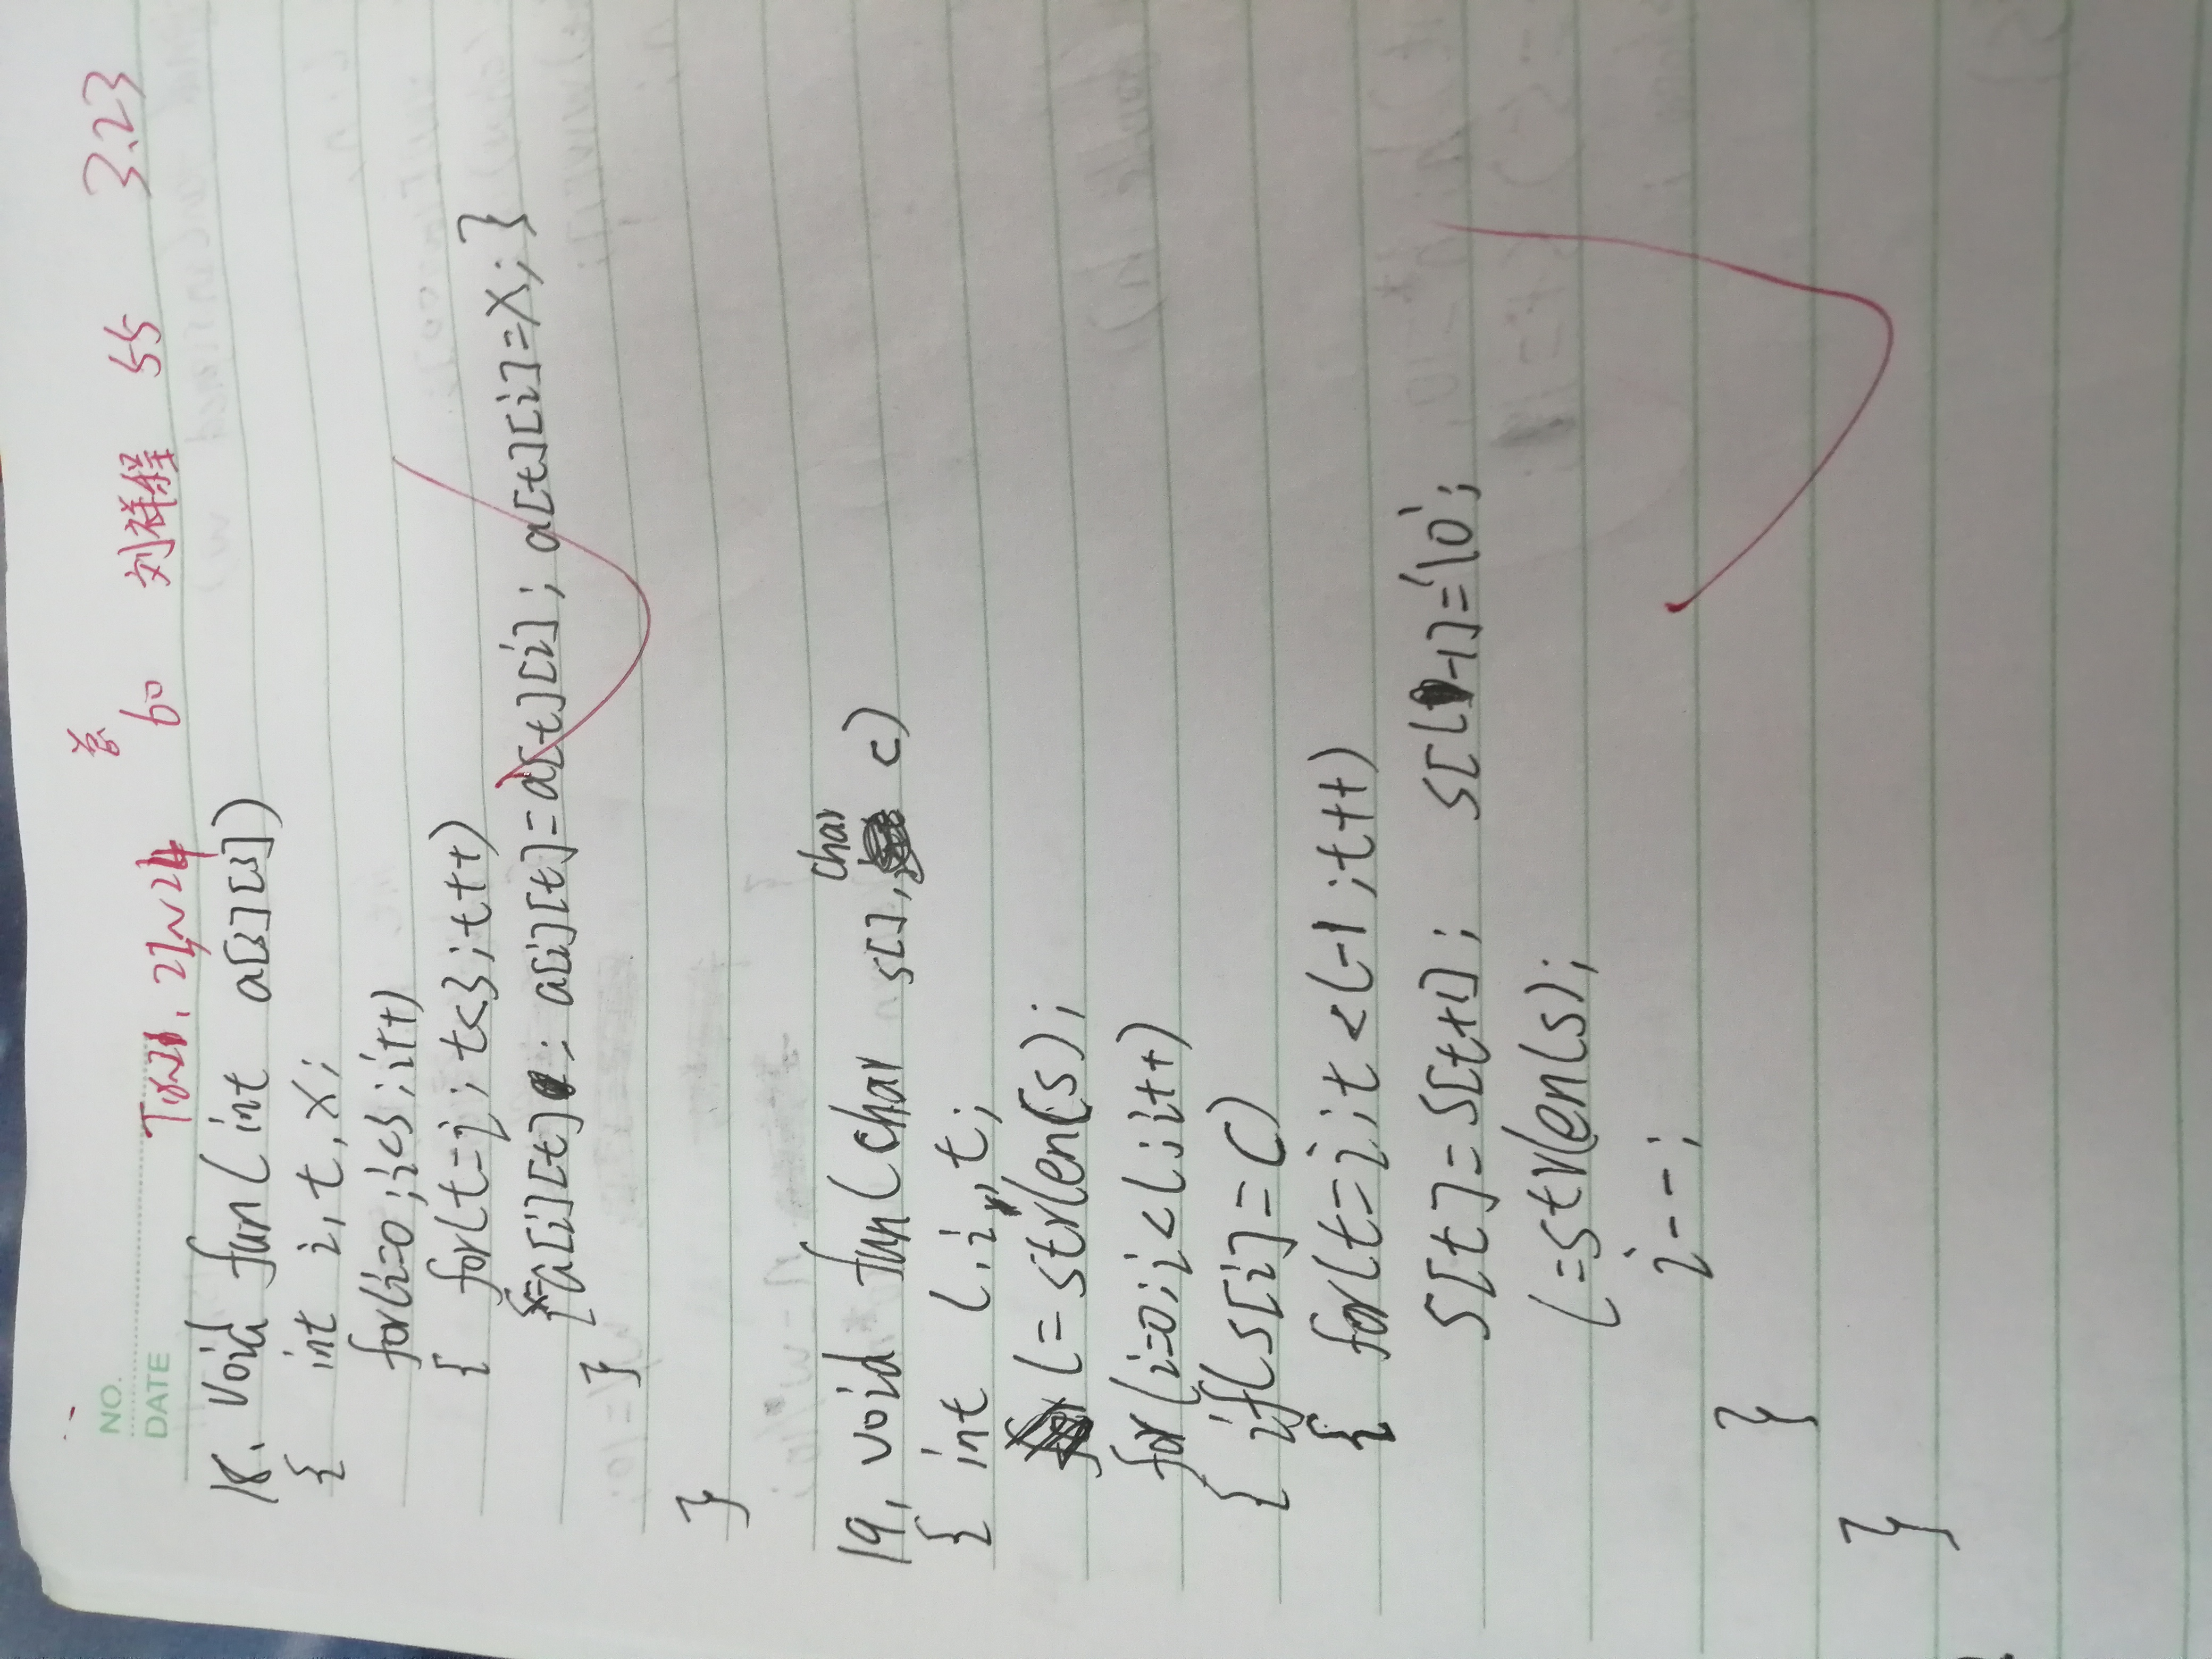 NO.
DATE
总
T18~21, 23~24 60 刘祥程 55 3.23
18. void fun(int a[3][3])
{ int i,t,x;
for(i=0;i<3;i++)
{ for(t=i;t<3;t++)
{x=a[i][t]; a[i][t]=a[t][i]; a[t][i]=x;}
}
}
19. void fun(char s[], char c)
{ int l,i,,t;
l=strlen(s);
for(i=0;i<l;i++)
{ if(s[i]=c)
{ for(t=i;t<l-1;t++)
s[t]=s[t+1]; s[l-1]='\0';
l=strlen(s);
i--;
}
}